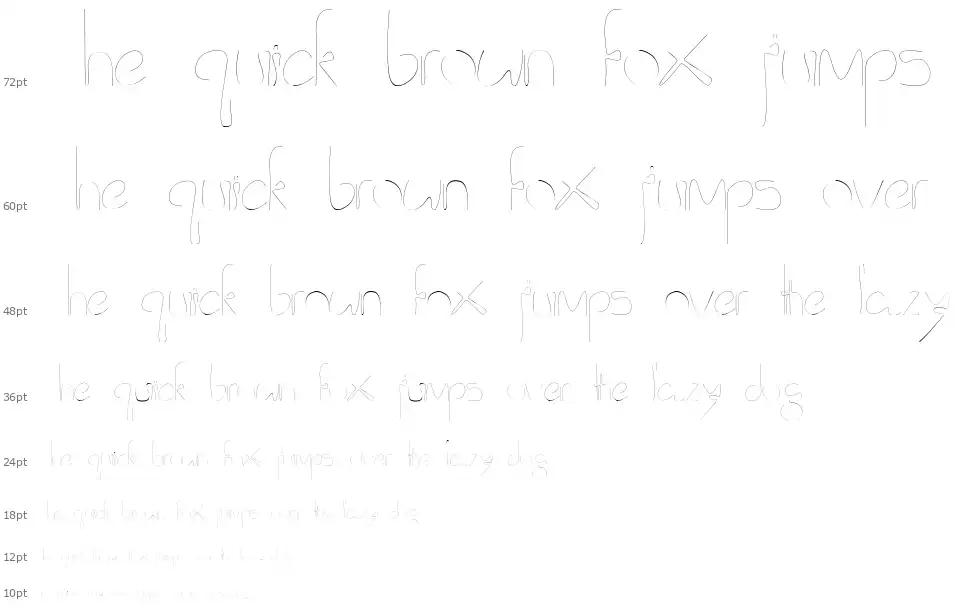 72pt he quick brown fox jumps
60pt he quick brown fox jumps over
48pt he quick brown fox jumps over the lazy
36pt he quick brown fox jumps over the lazy dog
24pt he quick brown fox jumps over the lazy dog
18pt he quick brown fox jumps over the lazy dog
12pt
10pt